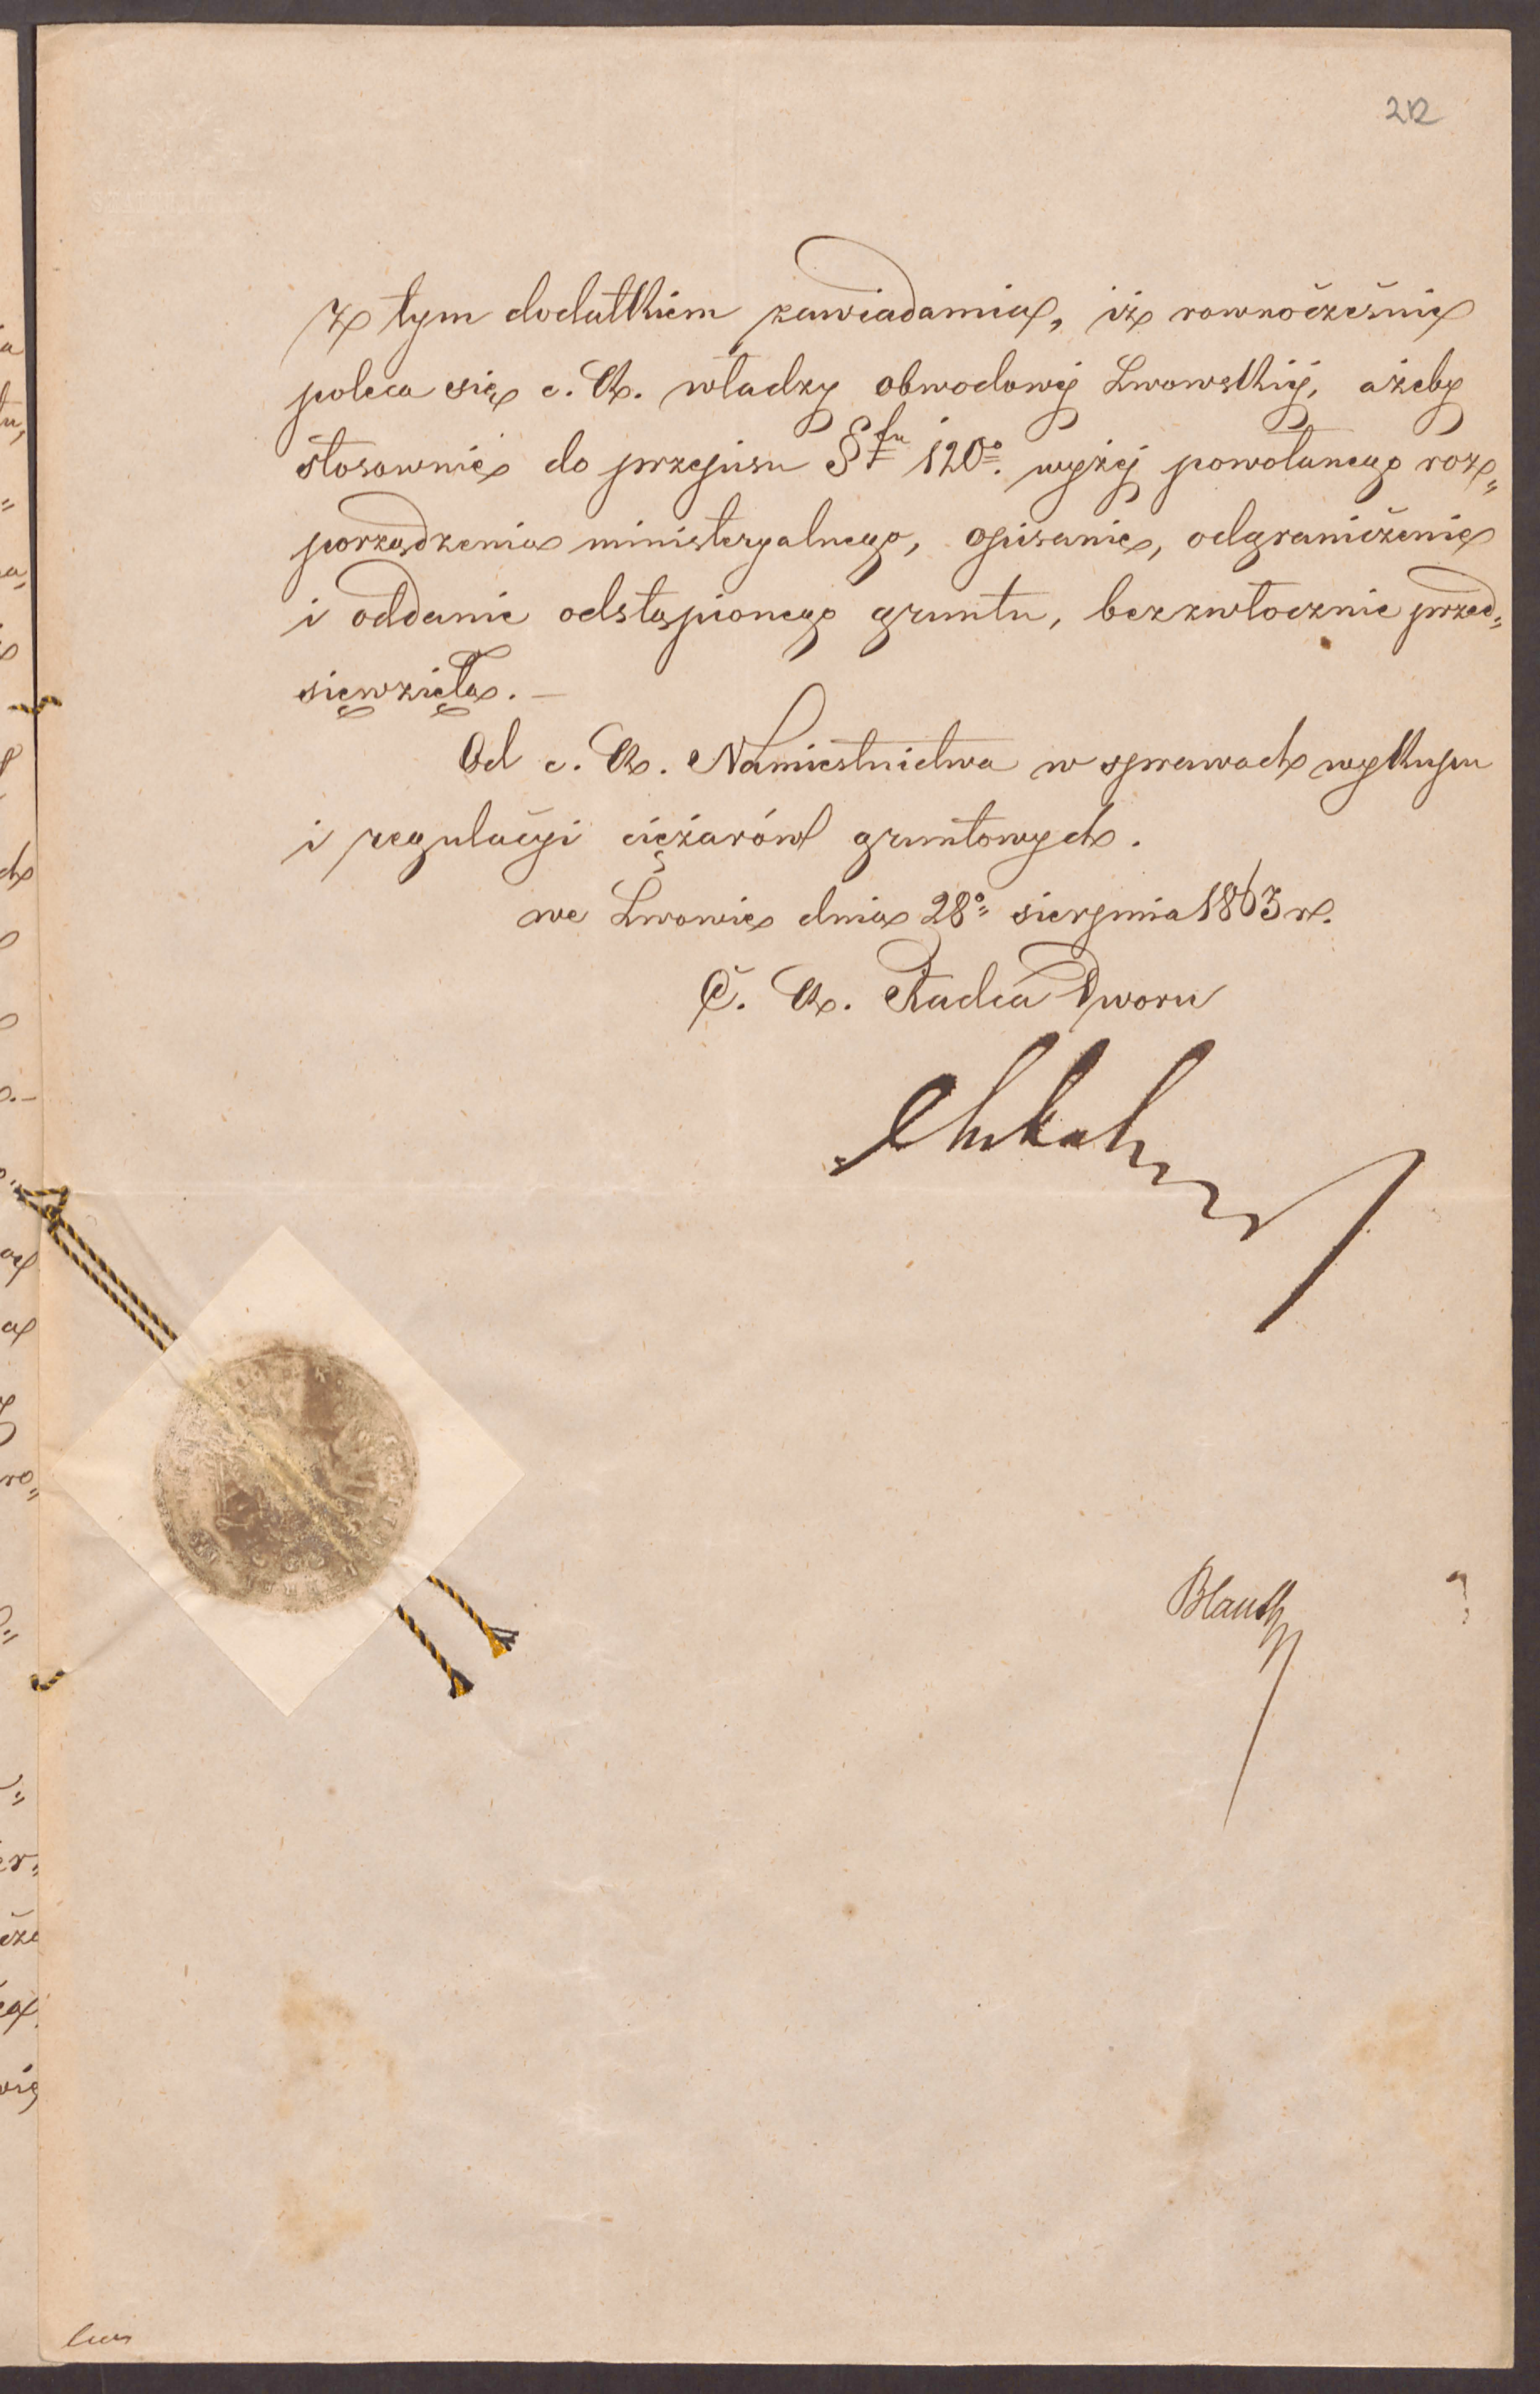 212
z tym dodatkiem zawiadamia, iż rownocześnie
poleca się c. k. władzy obwodowéj Lwowskiéj, ażeby
stosownie do przepisu §fu 120º. wyżéj powołanego roz„
porządzenia ministeryalnego, opisanie, odgraniczenie
i oddanie odstąpionego gruntu, bezzwłocznie przed„
sięwzięła. –
Od c. k. Namiestnictwa w sprawach wykupu
i regulacyi ciężarów gruntowych.
we Lwowie dnia 28º sierpnia 1863 r.
C. k. Radca Dworu